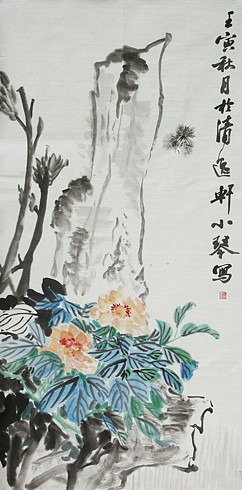 王寅秋月於清逸軒小琴寫